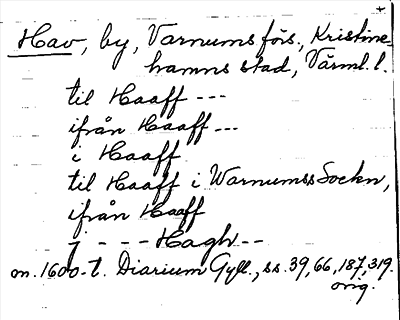 Hav, by, Varnums förs., Kristine-
hamns stad, Värml. l.
til Haaff ---
ifrån Haaff ---
i Haaff
til Haaff i Warnumss Sockn,
ifrån Haaff
j - - - Hagh --
on. 1600-t. Diarium Gyll., ss. 39, 66, 187, 319.
orig.